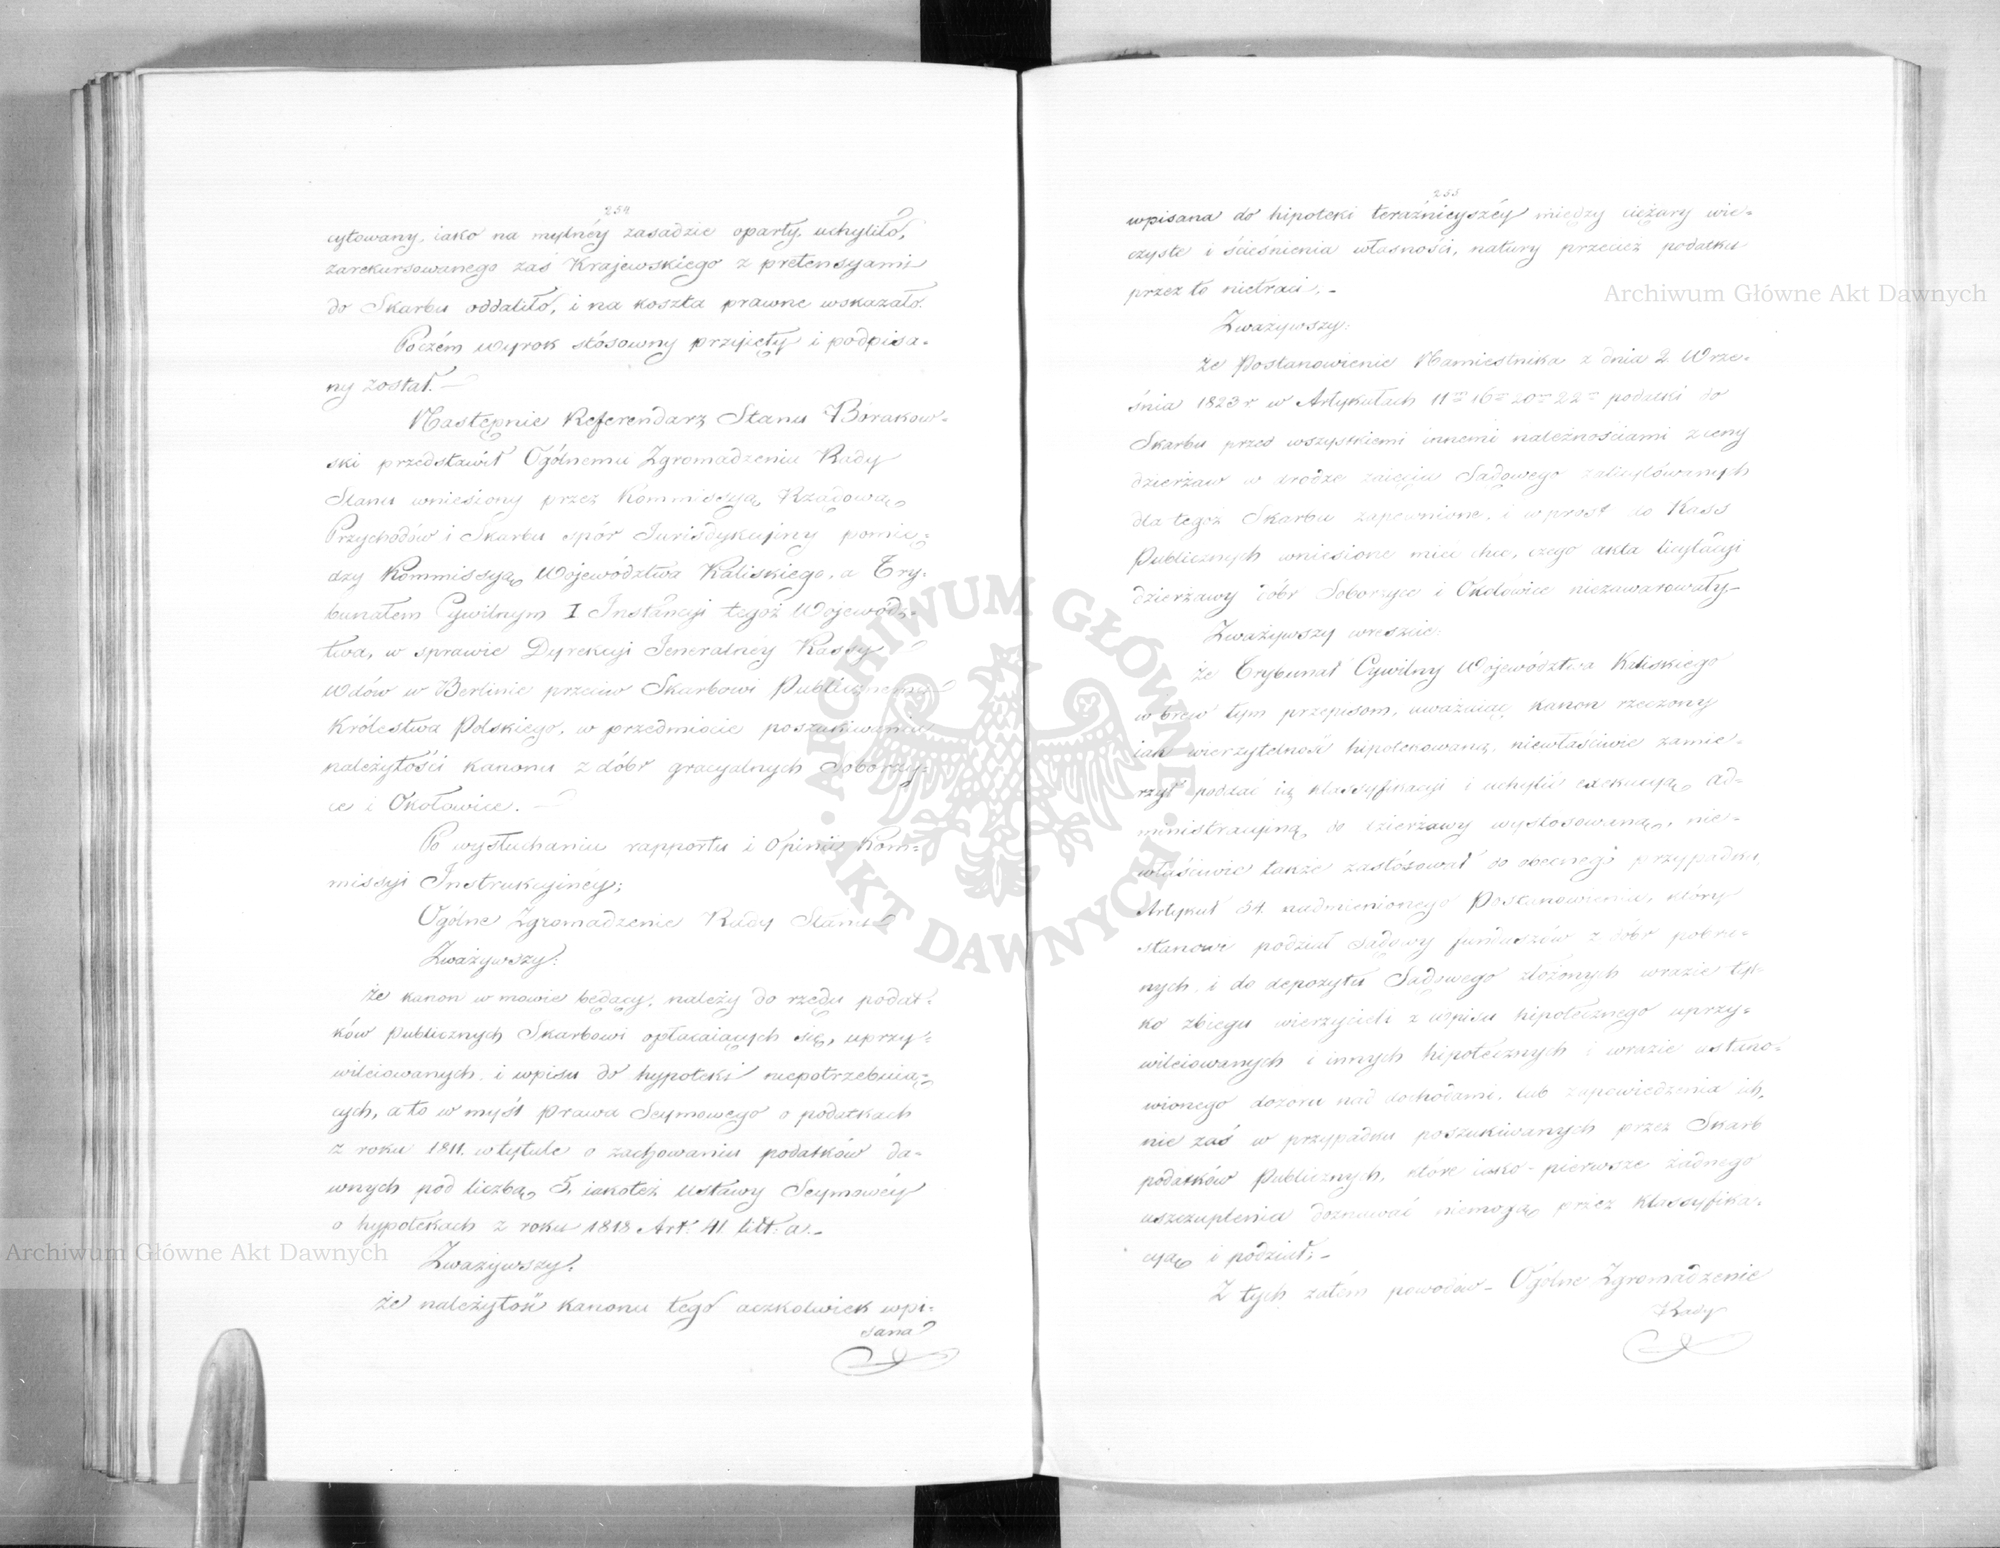 254
cytowany, iako na mylnéy zasadzie oparty, uchyliło,
zarekursowanego zaś Krajewskiego z pretensyami
do Skarbu oddaliło, i na koszta prawne wskazało.
Poczém wyrok stósowny przyięty i podpisa-
ny został. —
Następnie Referendarz Stanu Borakow-
ski przedstawił Ogólnemu Zgromadzeniu Rady
Stanu wniesiony przez Kommissyą Rządową
Przychodów i Skarbu spór Jurisdykcyiny pomię-
dzy Kommissyą Województwa Kaliskiego, a Try-
bunałem Cywilnym I Instancyi tegoż Wojewódz-
twa, w sprawie Dyrekcyi Jeneralnéy Kassy
Wdów w Berlinie przeciw Skarbowi Publicznemu
Królestwa Polskiego, w przedmiocie poszukiwania
należytości kanonu z dóbr gracyalnych Soborzy-
ce i Okołowice. —
Po wysłuchaniu rapportu i opinii Kom-
missyi Instrukcyinéy;
Ogólne Zgromadzenie Rady Stanu
Zważywszy:
że kanon w mowie będący, należy do rzędu podat-
ków publicznych Skarbowi opłacaiących się, uprzy-
wileiowanych i wpisu do hypoteki niepotrzebuią-
cych, a to w myśl Prawa Seymowego o podatkach
z roku 1811. w tytule o zachowaniu podatków da-
wnych pod liczbą 5, iakoteż Ustawy Seymowéy
o hypotekach z roku 1818 Art. 41 litt: a. -
Zważywszy,
że należytość kanonu tego aczkolwiek wpi-
sana
255
wpisana do hipoteki teraźnieyszéy między ciężary wie-
czyste i ścieśnienia własności, natury przecież podatku
przez to nietraci. -
Zważywszy:
że Postanowienie Namiestnika z dnia 2 Wrze-
śnia 1823 r w Artykułach 11 16 20 22 podatki do
Skarbu przed wszystkiemi innemi należnościami z ceny
dzierżaw w drodze zaięcia Sądowego zalicytowanych
dla tegoż Skarbu zapewnione, i wprost do Kass
Publicznych wniesione mieć chce, czego akta licytacyi
dzierżawy dóbr Soborzyce i Okołowice niezawarowały.
Zważywszy wreszcie:
że Trybunał Cywilny Województwa Kaliskiego
wbrew tym przepisom, uważaiąc kanon rzeczony
iak wierzytelność hipotekowaną, niewłaściwie zamie-
rzył poddać ią klassyfikacyi i uchylić exekucyą ad-
ministracyiną do dzierżawy wystosowaną, nie-
właściwie także zastósował do obecnego przypadku
Artykuł 34 nadmienionego Postanowienia, który
stanowi podział Sądowy funduszów z dóbr pobra-
nych, i do depozytu Sądowego złożonych w razie tyl-
ko zbiegu wierzycieli z wpisu hipotecznego uprzy-
wileiowanych i innych hipotecznych i w razie ustano-
wionego dozoru nad dochodami, lub zapowiedzenia ich,
nie zaś w przypadku poszukiwanych przez Skarb
podatków Publicznych, które iako pierwsze żadnego
uszczuplenia doznawać niemogą przez klassyfika-
cyą i podział; -
Z tych zatém powodów - Ogólne Zgromadzenie
Rady
Archiwum Główne Akt Dawnych
Archiwum Główne Akt Dawnych
ARCHIWUM GŁÓWNE · AKT DAWNYCH ·